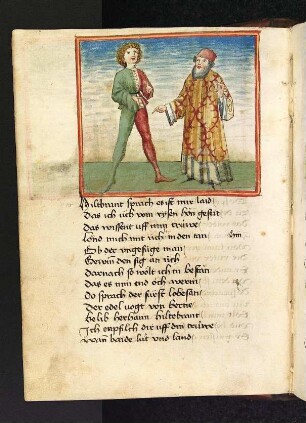 Hiltbrant sprach es ist mir laid
Das ich üch vom rysen hon geseit
Das wissent uff min trüwe
Lond mich mit üch in den tan
Ob der ungefüge man
Gewin den sig an üch
Darnach so wölt ich in bestan
Das es min end och wern
Do sprach der fürst lobesan
Der edel vogt von berne
belib herhaim hiltebrant
Ich enpfilch dir uff din trüwe
baide lüt und land